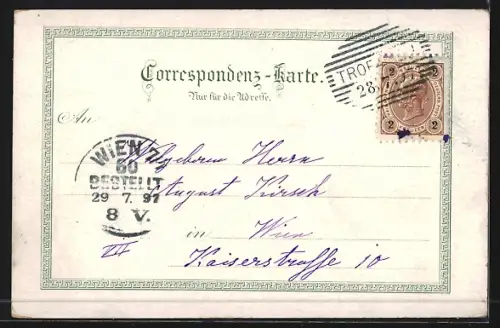 Correspondenz-Karte.
Nur für die Adresse.
TROF
28
2 2
2 2
An
Wolgeboren Herrn
August Kirsch
in Wien
Kaiserstrasse 10
VII
WIEN 7
60
BESTELLT
29 7. 97
8 V.